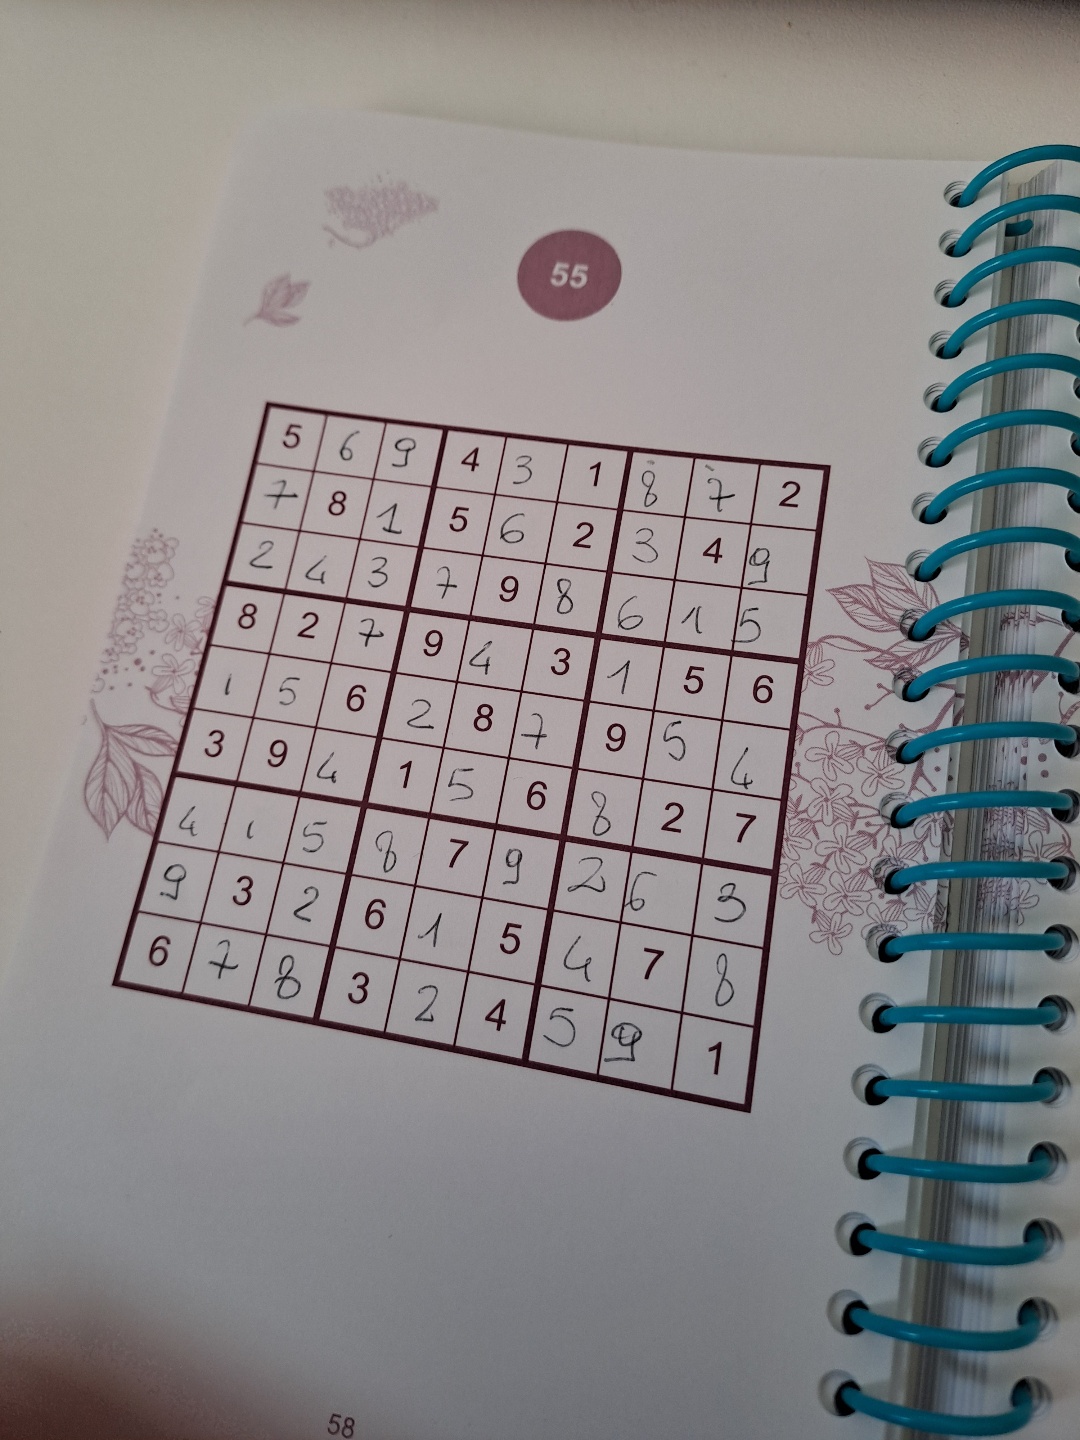 55
5 6 9 4 3 1 8 7 2
7 8 1 5 6 2 3 4 9
2 4 3 7 9 8 6 1 5
8 2 7 9 4 3 1 5 6
1 5 6 2 8 7 9 5 4
3 9 4 1 5 6 8 2 7
4 1 5 8 7 9 2 6 3
9 3 2 6 1 5 4 7 8
6 7 8 3 2 4 5 9 1
58